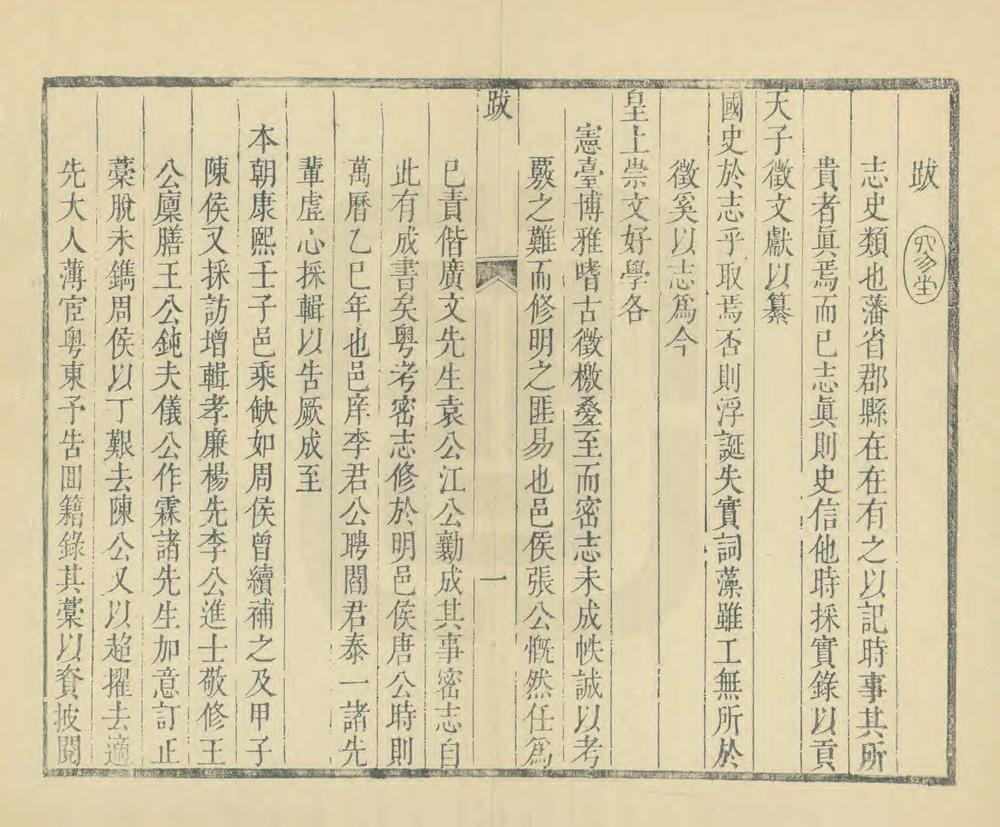 跋
志史類也藩省郡縣在在有之以記時事其所
貴者眞焉而已志眞則史信他時採實錄以貢
天子徵文獻以纂
國史於志乎取焉否則浮誕失實詞藻雖工無所於
徵奚以志爲今
皇上崇文好學各
憲臺博雅嗜古徵檄疊至而密志未成帙誠以考
覈之難而修明之匪易也邑侯張公慨然任爲
跋
一
已責偕廣文先生袁公江公勷成其事密志自
此有成書矣粤考密志修於明邑侯唐公時則
萬曆乙巳年也邑庠李君公聘閻君泰一諸先
輩虛心採輯以告厥成至
本朝康熙壬子邑乘缺如周侯曾續補之及甲子
陳侯又採訪增輯孝廉楊先李公進士敬修王
公廩膳王公鈍夫儀公作霖諸先生加意訂正
藁脫未鐫周侯以丁艱去陳公又以超擢去適
先大人薄宦粤東予告囬籍錄其藁以資披閱